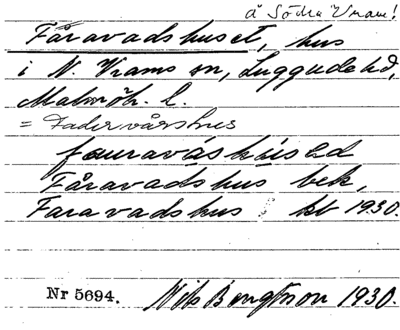 å Södra Vram!
Fåravadshuset, hus
i N. Vrams sn, Luggude hd,
Malmöh. l.
= Fadervårshus
fauraváshúsed
Fåravadshus bek,
Faravadshus kb 1930.
Nr 5694. Nils Bengtsson 1930.